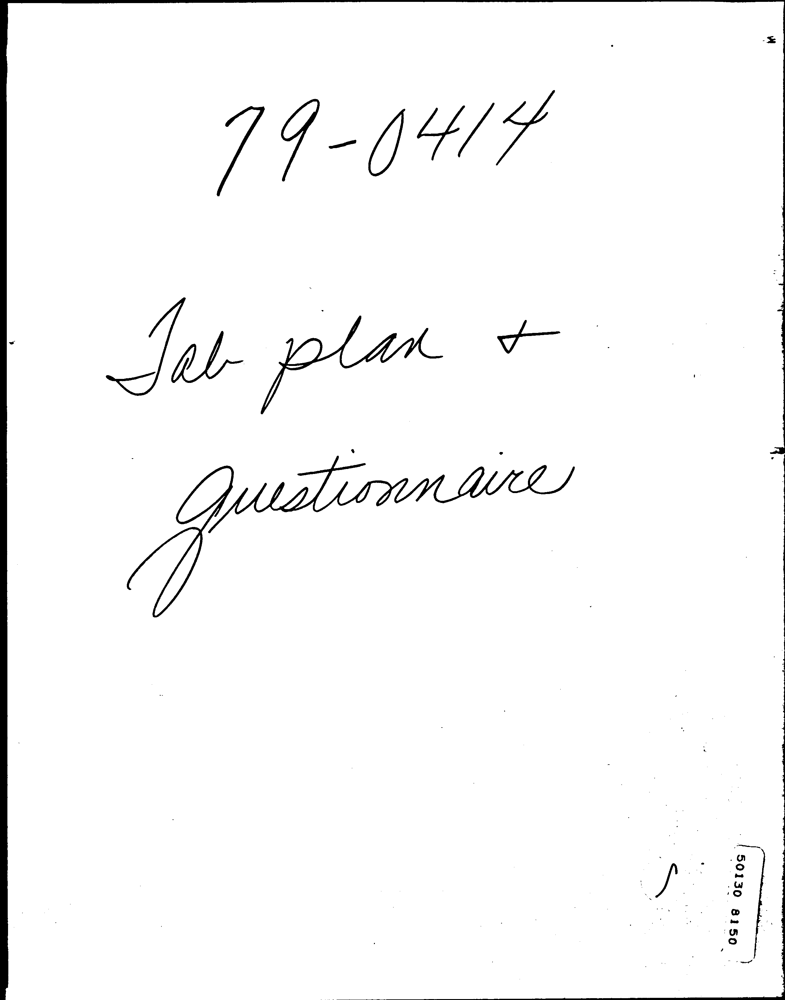 79-0414
Tab plan +
questionnaire
50130 8150